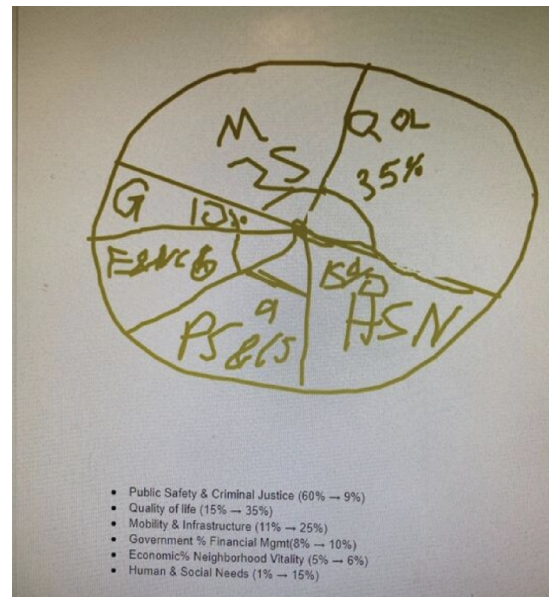 M
QOL
S
35%
G
10%
15%
HSN
9
PS &CJ
• Public Safety & Criminal Justice (60% → 9%)
• Quality of life (15% → 35%)
• Mobility & Infrastructure (11% → 25%)
• Government % Financial Mgmt(8% → 10%)
• Economic% Neighborhood Vitality (5% → 6%)
• Human & Social Needs (1% → 15%)